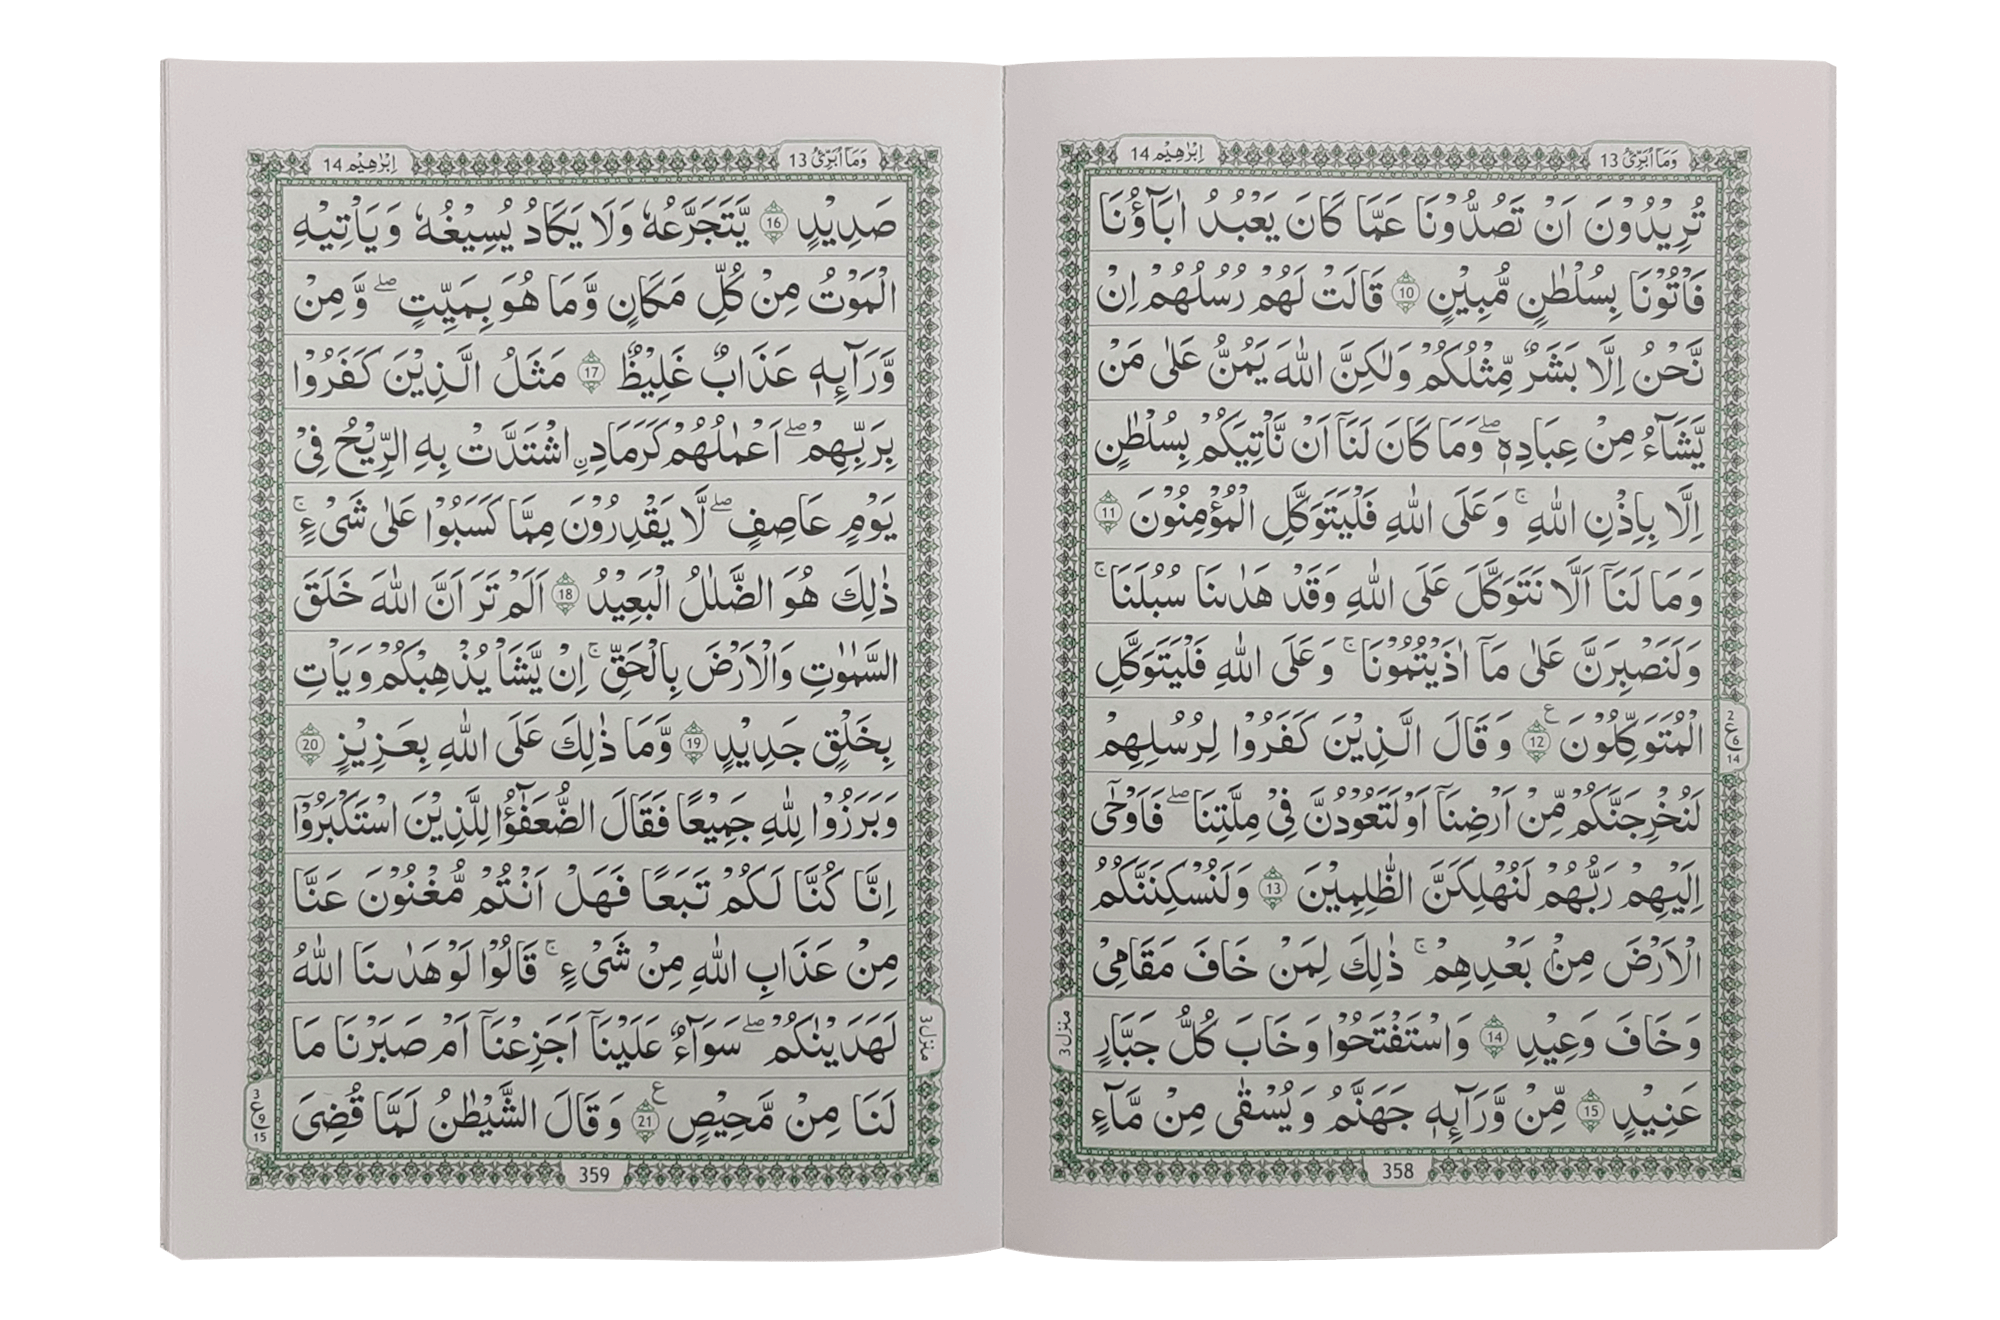 وَمَاۤ اُبَرِّئُ 13
اِبْرٰهِيْم 14
تُرِيْدُوْنَ اَنْ تَصُدُّوْنَا عَمَّا كَانَ يَعْبُدُ اٰبَآؤُنَا
فَاْتُوْنَا بِسُلْطٰنٍ مُّبِيْنٍ 10 قَالَتْ لَهُمْ رُسُلُهُمْ اِنْ
نَّحْنُ اِلَّا بَشَرٌ مِّثْلُكُمْ وَلٰكِنَّ اللّٰهَ يَمُنُّ عَلٰى مَنْ
يَّشَآءُ مِنْ عِبَادِهٖ ۖ وَمَا كَانَ لَنَآ اَنْ نَّاْتِيَكُمْ بِسُلْطٰنٍ
اِلَّا بِاِذْنِ اللّٰهِ ۚ وَعَلَى اللّٰهِ فَلْيَتَوَكَّلِ الْمُؤْمِنُوْنَ 11
وَمَا لَنَآ اَلَّا نَتَوَكَّلَ عَلَى اللّٰهِ وَقَدْ هَدٰىنَا سُبُلَنَا ۚ
وَلَنَصْبِرَنَّ عَلٰى مَآ اٰذَيْتُمُوْنَا ۚ وَعَلَى اللّٰهِ فَلْيَتَوَكَّلِ
الْمُتَوَكِّلُوْنَ 12 ع وَقَالَ الَّذِيْنَ كَفَرُوْا لِرُسُلِهِمْ
لَنُخْرِجَنَّكُمْ مِّنْ اَرْضِنَآ اَوْ لَتَعُوْدُنَّ فِيْ مِلَّتِنَا ۖ فَاَوْحٰٓى
اِلَيْهِمْ رَبُّهُمْ لَنُهْلِكَنَّ الظّٰلِمِيْنَ 13 وَلَنُسْكِنَنَّكُمُ
الْاَرْضَ مِنْۢ بَعْدِهِمْ ۚ ذٰلِكَ لِمَنْ خَافَ مَقَامِيْ
وَخَافَ وَعِيْدِ 14 وَاسْتَفْتَحُوْا وَخَابَ كُلُّ جَبَّارٍ
عَنِيْدٍ 15 مِّنْ وَّرَآئِهٖ جَهَنَّمُ وَيُسْقٰى مِنْ مَّآءٍ
2
ع 6
14
منزل 3
358
وَمَاۤ اُبَرِّئُ 13
اِبْرٰهِيْم 14
صَدِيْدٍ 16 يَّتَجَرَّعُهٗ وَلَا يَكَادُ يُسِيْغُهٗ وَيَاْتِيْهِ
الْمَوْتُ مِنْ كُلِّ مَكَانٍ وَّمَا هُوَ بِمَيِّتٍ ۖ وَّمِنْ
وَّرَآئِهٖ عَذَابٌ غَلِيْظٌ 17 مَثَلُ الَّذِيْنَ كَفَرُوْا
بِرَبِّهِمْ ۖ اَعْمٰلُهُمْ كَرَمَادِ ِۨ اشْتَدَّتْ بِهِ الرِّيْحُ فِيْ
يَوْمٍ عَاصِفٍ ۖ لَّا يَقْدِرُوْنَ مِمَّا كَسَبُوْا عَلٰى شَيْءٍ ۚ
ذٰلِكَ هُوَ الضَّلٰلُ الْبَعِيْدُ 18 اَلَمْ تَرَ اَنَّ اللّٰهَ خَلَقَ
السَّمٰوٰتِ وَالْاَرْضَ بِالْحَقِّ ۚ اِنْ يَّشَاْ يُذْهِبْكُمْ وَيَاْتِ
بِخَلْقٍ جَدِيْدٍ 19 وَّمَا ذٰلِكَ عَلَى اللّٰهِ بِعَزِيْزٍ 20
وَبَرَزُوْا لِلّٰهِ جَمِيْعًا فَقَالَ الضُّعَفٰٓؤُا لِلَّذِيْنَ اسْتَكْبَرُوْٓا
اِنَّا كُنَّا لَكُمْ تَبَعًا فَهَلْ اَنْتُمْ مُّغْنُوْنَ عَنَّا
مِنْ عَذَابِ اللّٰهِ مِنْ شَيْءٍ ۚ قَالُوْا لَوْ هَدٰىنَا اللّٰهُ
لَهَدَيْنٰكُمْ ۖ سَوَآءٌ عَلَيْنَآ اَجَزِعْنَآ اَمْ صَبَرْنَا مَا
لَنَا مِنْ مَّحِيْصٍ 21 ع وَقَالَ الشَّيْطٰنُ لَمَّا قُضِيَ
منزل 3
3
ع 9
15
359